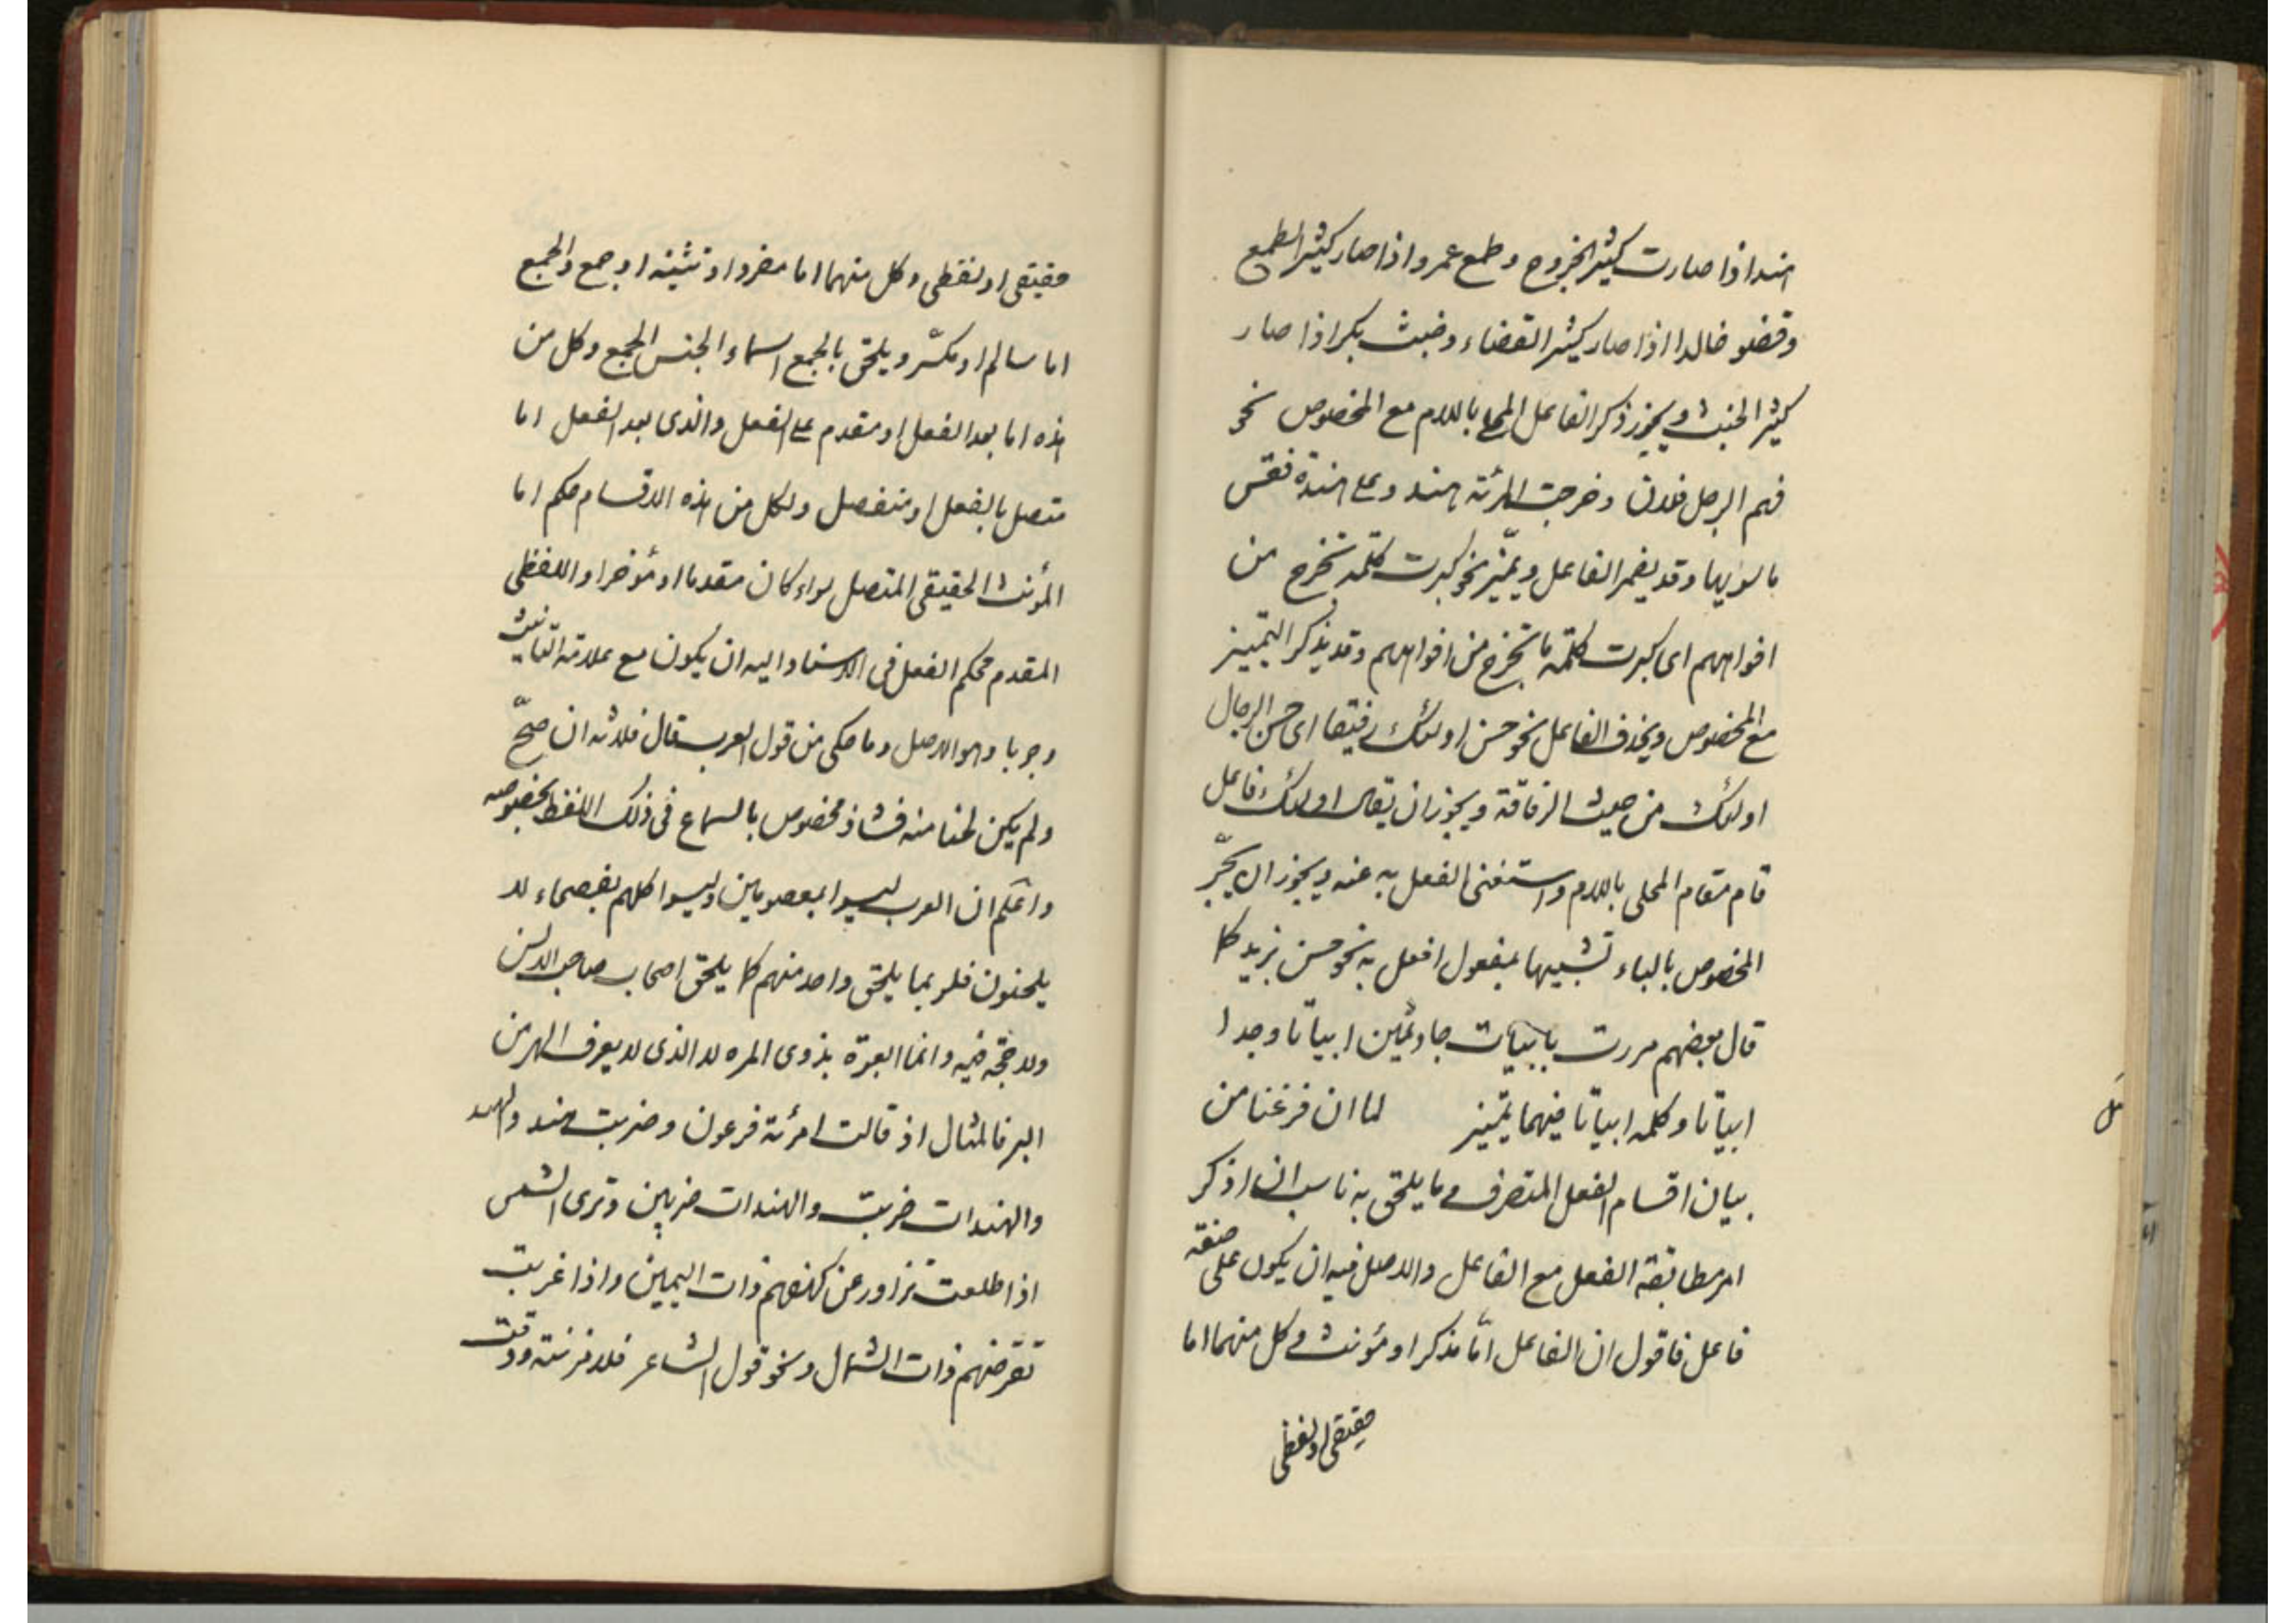 هند اذا صارت كثير الخروج وطمع عمرو اذا صار كثير الطمع
وقضو خالدا اذا صار كثير القضاء وخبث بكر اذا صار
كثير الخبث ويجوز ذكر الفاعل المحلى باللام مع المخصوص نحو
فهم الرجل فلان وخرجت المرئة هند وعلى هنده فقس
ما سويها وقد يضمر الفاعل ويميّز نحو كبرت كلمة تخرج من
افواههم اى كبرت كلمة ما تخرج من افواههم وقد يذكر التمييز
مع المخصوص ويحذف الفاعل نحو حسن اولئك رفيقا اى حسن الرجال
اولئك من حيث الرفاقة ويجوز ان يقال اولئك فاعل
قام مقام المحلى باللام واستغنى الفعل به عنه ويجوز ان يجرّ
المخصوص بالباء تشبيها بمفعول افعل به نحو حسن بزيد كما
قال بعضهم مررت بابيات جاد بهن ابياتا وجدا
ابياتا وكلمه ابياتا فيهما تميز لما ان فرغنا من
بيان اقسام الفعل المتصرف وما يلحق به ناسب ان اذكر
امر مطابقة الفعل مع الفاعل والاصل فيه ان يكون على صفة
فاعل فاقول ان الفاعل امّا مذكر او مؤنث وكل منهما اما
حقيقى او لفظى
حقيقى او لفظى وكل منهما اما مفرد او تثنيه او جمع والجمع
اما سالم او مكسّر ويلحق بالجمع اسماء الجنس الجمع وكل من
هذه اما بعد الفعل او مقدم على الفعل والذى بعد الفعل اما
متصل بالفعل او منفصل ولكل من هذه الاقسام حكم اما
المؤنث الحقيقى المتصل سواء كان مقدما او مؤخرا واللفظى
المقدم فحكم الفعل فى الاسناد اليه ان يكون مع علامة التانيث
وجوبا وهو الاصل وما حكى من قول العرب قال فلانه ان صحّ
ولم يكن لحنا منه فشاذ مخصوص بالسماع فى ذلك اللفظ بخصوصه
واعلم ان العرب ليسوا بمعصومين وليسوا كلهم بفصحاء لا
يلحنون فلربما يلحن واحد منهم كما يلحن اصحاب صاحب الالسن
ولا حجّة فيه وانما العبرة بذوى المره لا الذى لا يعرف الهر من
البر فالمثال اذ قالت امرئة فرعون وضربت هند والهند
والهندات ضربت والهندات ضربن وترى الشمس
اذا طلعت تزاور عن كهفهم ذات اليمين واذا غربت
تقرضهم ذات الشمال ونحو قول الشاعر فلا مزنة ودقت